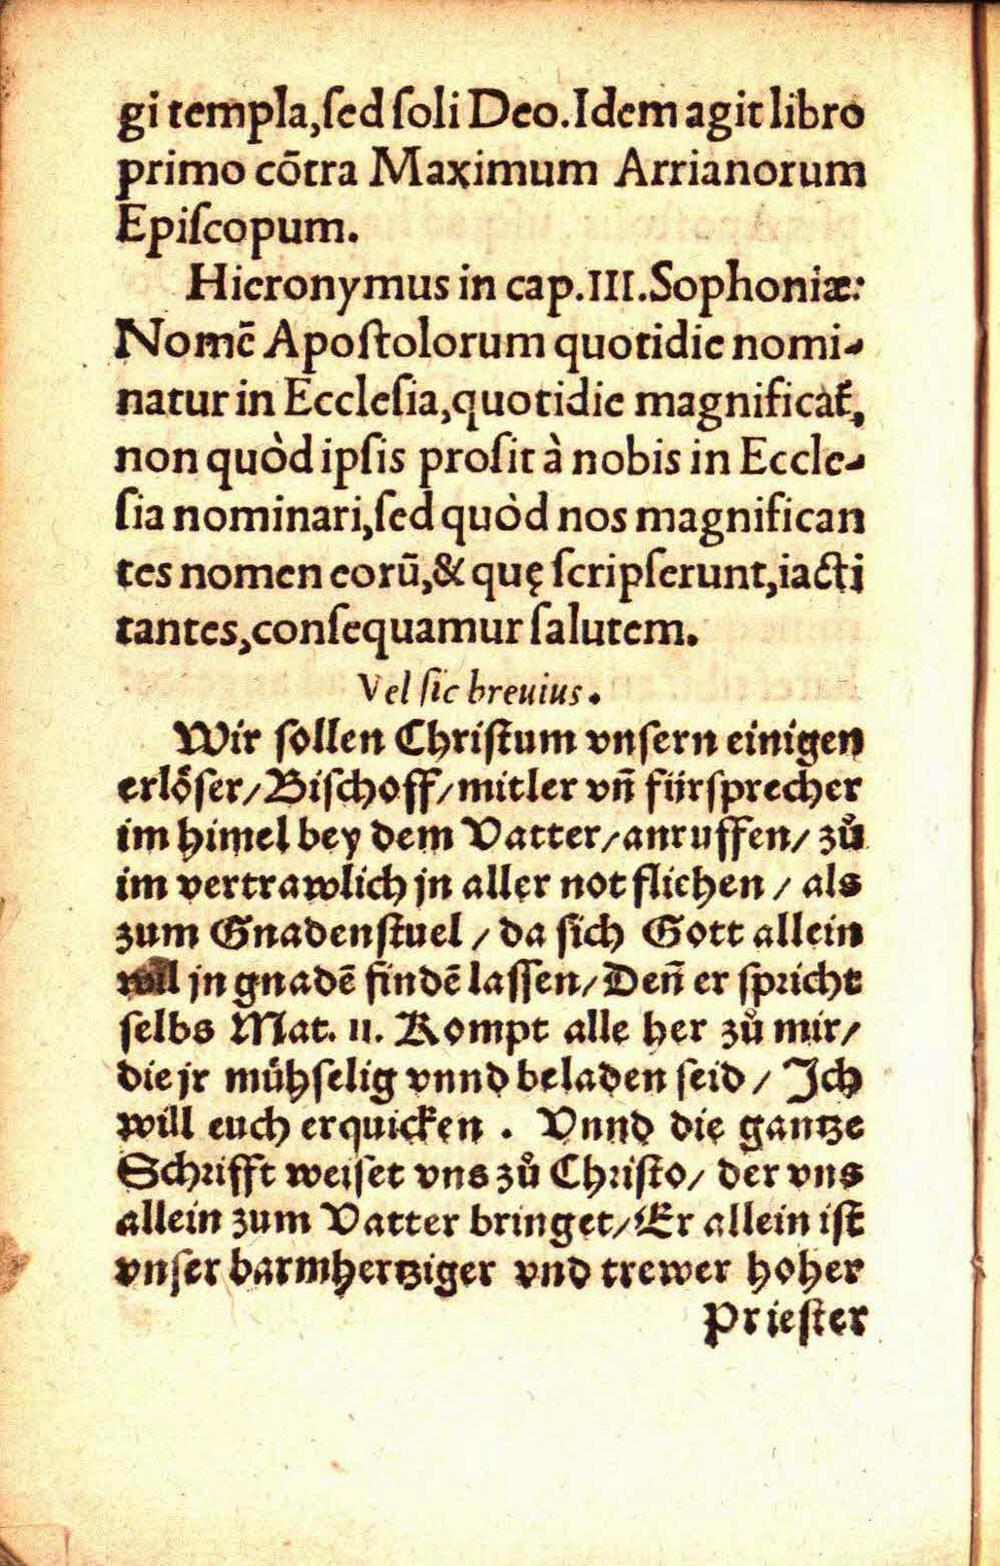 gi templa,ſed ſoli Deo.Idem agit libro
primo cõtra Maximum Arrianorum
Epiſcopum.
Hieronymus in cap.III.Sophoniæ:
Nomē Apoſtolorum quotidie nomi-
natur in Eccleſia,quotidie magnificat̃,
non quòd ipſis proſit à nobis in Eccle-
ſia nominari,ſed quòd nos magnifican
tes nomen eorū,& quę ſcripſerunt,iacti
tantes,conſequamur ſalutem.
Vel ſic breuius.
Wir ſollen Chriſtum vnſern einigen
erlöſer/Biſchoff/mitler vñ fürſprecher
im himel bey dem Vatter/anruffen/ zů
im vertrawlich jn aller not fliehen / als
zum Gnadenſtuel / da ſich Gott allein
will jn gnadē findē laſſen/Deñ er ſpricht
ſelbs Mat. 11. Kompt alle her zů mir/
die jr mühſelig vnnd beladen ſeid / Ich
will euch erquicken . Vnnd die gantze
Schrifft weiſet vns zů Chriſto/ der vns
allein zum Vatter bringet/Er allein iſt
vnſer barmhertziger vnd trewer hoher
Prieſter